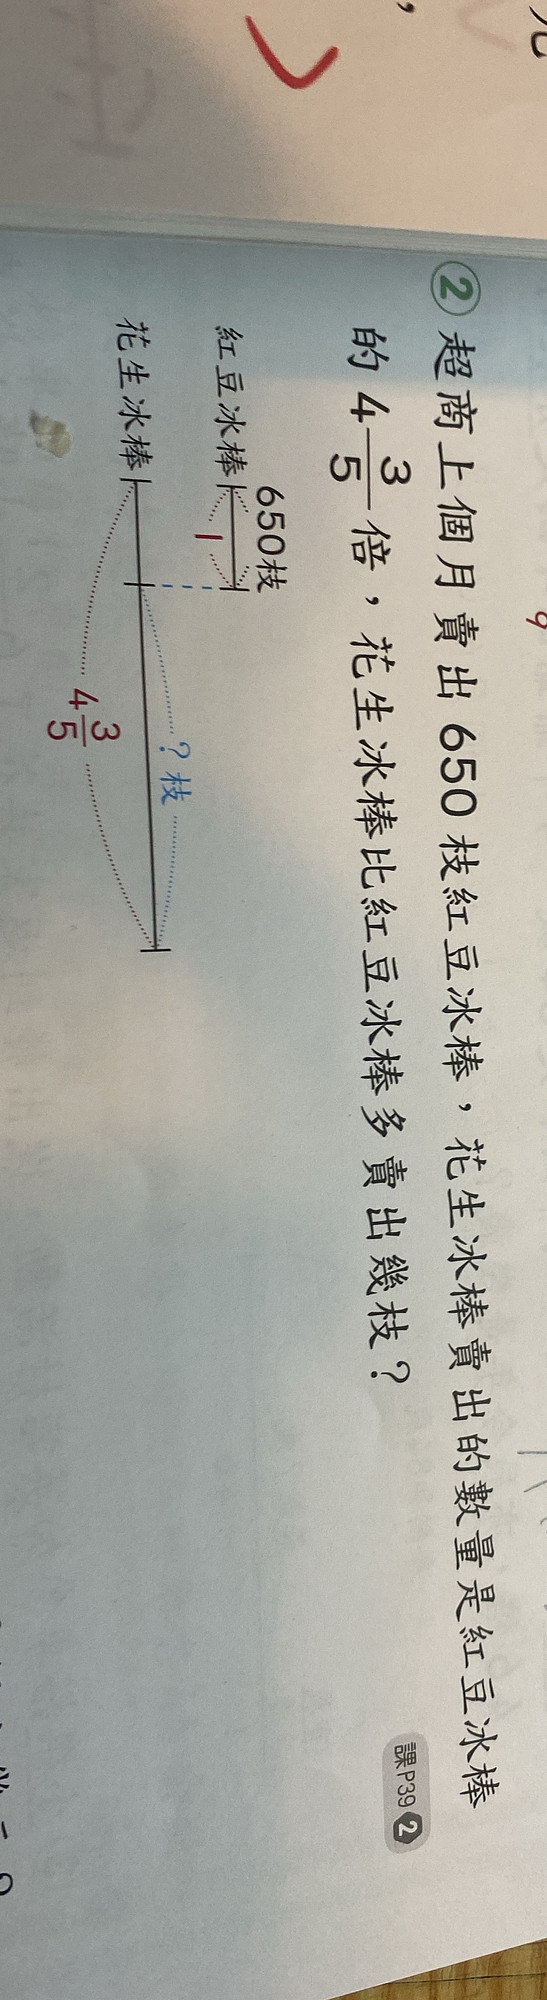 ② 超商上個月賣出 650 枝紅豆冰棒，花生冰棒賣出的數量是紅豆冰棒
的 4 3/5 倍，花生冰棒比紅豆冰棒多賣出幾枝？
課P39 2
650枝
紅豆冰棒
1
?枝
花生冰棒
4 3/5